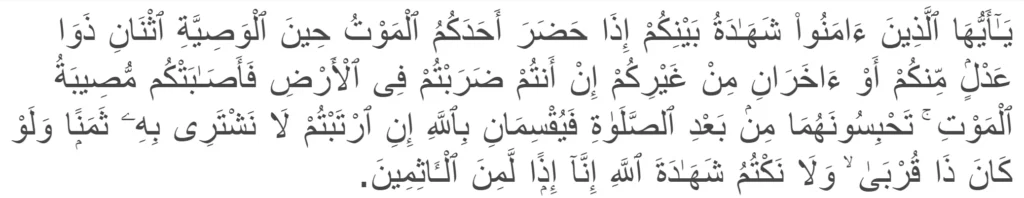 يَـٰٓأَيُّهَا ٱلَّذِينَ ءَامَنُوا۟ شَهَـٰدَةُ بَيْنِكُمْ إِذَا حَضَرَ أَحَدَكُمُ ٱلْمَوْتُ حِينَ ٱلْوَصِيَّةِ ٱثْنَانِ ذَوَا
عَدْلٍۢ مِّنكُمْ أَوْ ءَاخَرَانِ مِنْ غَيْرِكُمْ إِنْ أَنتُمْ ضَرَبْتُمْ فِى ٱلْأَرْضِ فَأَصَـٰبَتْكُم مُّصِيبَةُ
ٱلْمَوْتِ ۚ تَحْبِسُونَهُمَا مِنۢ بَعْدِ ٱلصَّلَوٰةِ فَيُقْسِمَانِ بِٱللَّهِ إِنِ ٱرْتَبْتُمْ لَا نَشْتَرِى بِهِۦ ثَمَنًۭا وَلَوْ
كَانَ ذَا قُرْبَىٰ ۙ وَلَا نَكْتُمُ شَهَـٰدَةَ ٱللَّهِ إِنَّآ إِذًۭا لَّمِنَ ٱلْـَٔاثِمِينَ.